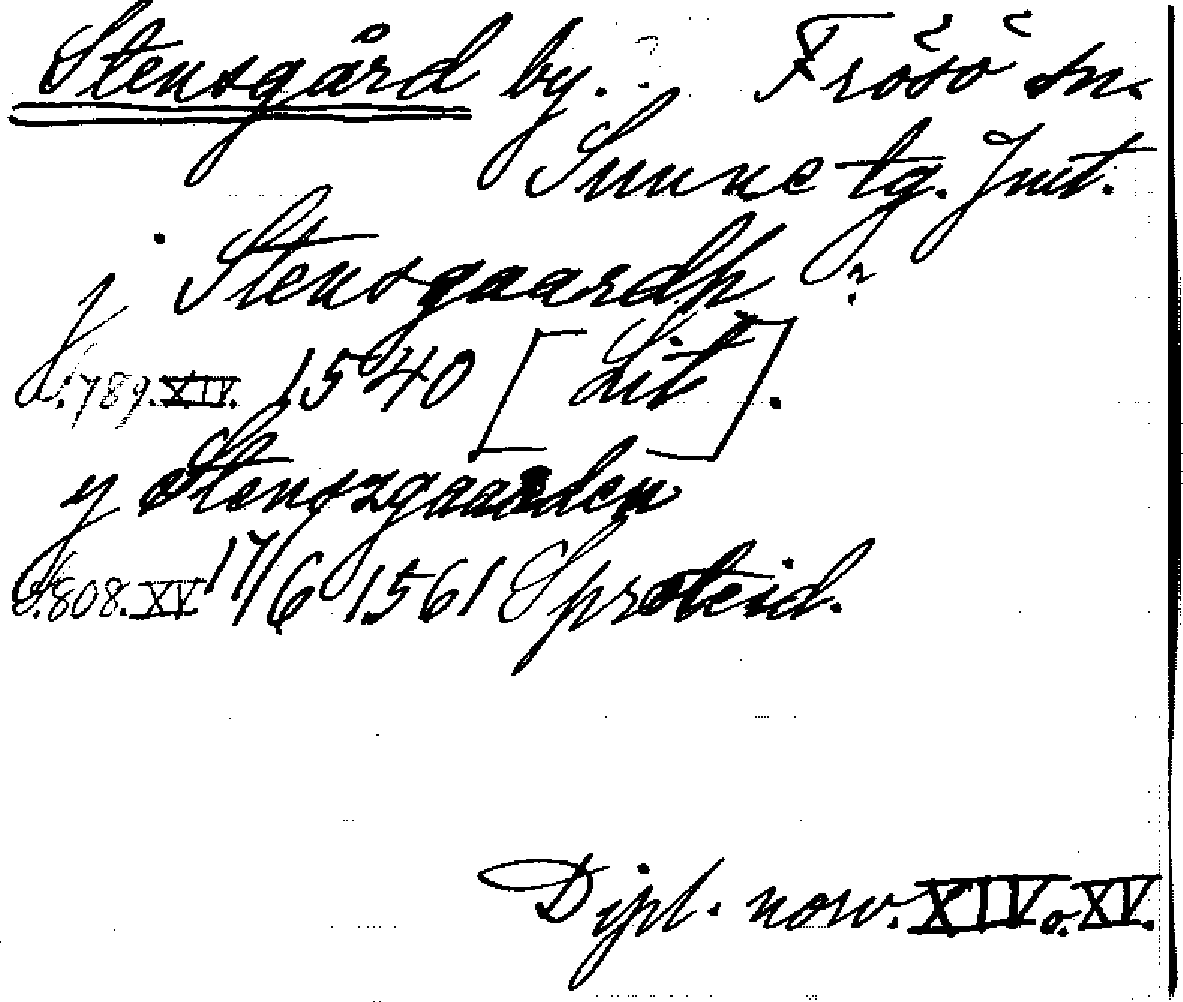 Stensgård by. Frösö sn.
Sunne tg. Jmt.
j Stensgaardh ?
S.789.XIV. 1540 [Lit].
y Stenszgaarden
S.808.XV. 17/6 1561 Sproteid.
Dipl. norv. XIV o. XV.